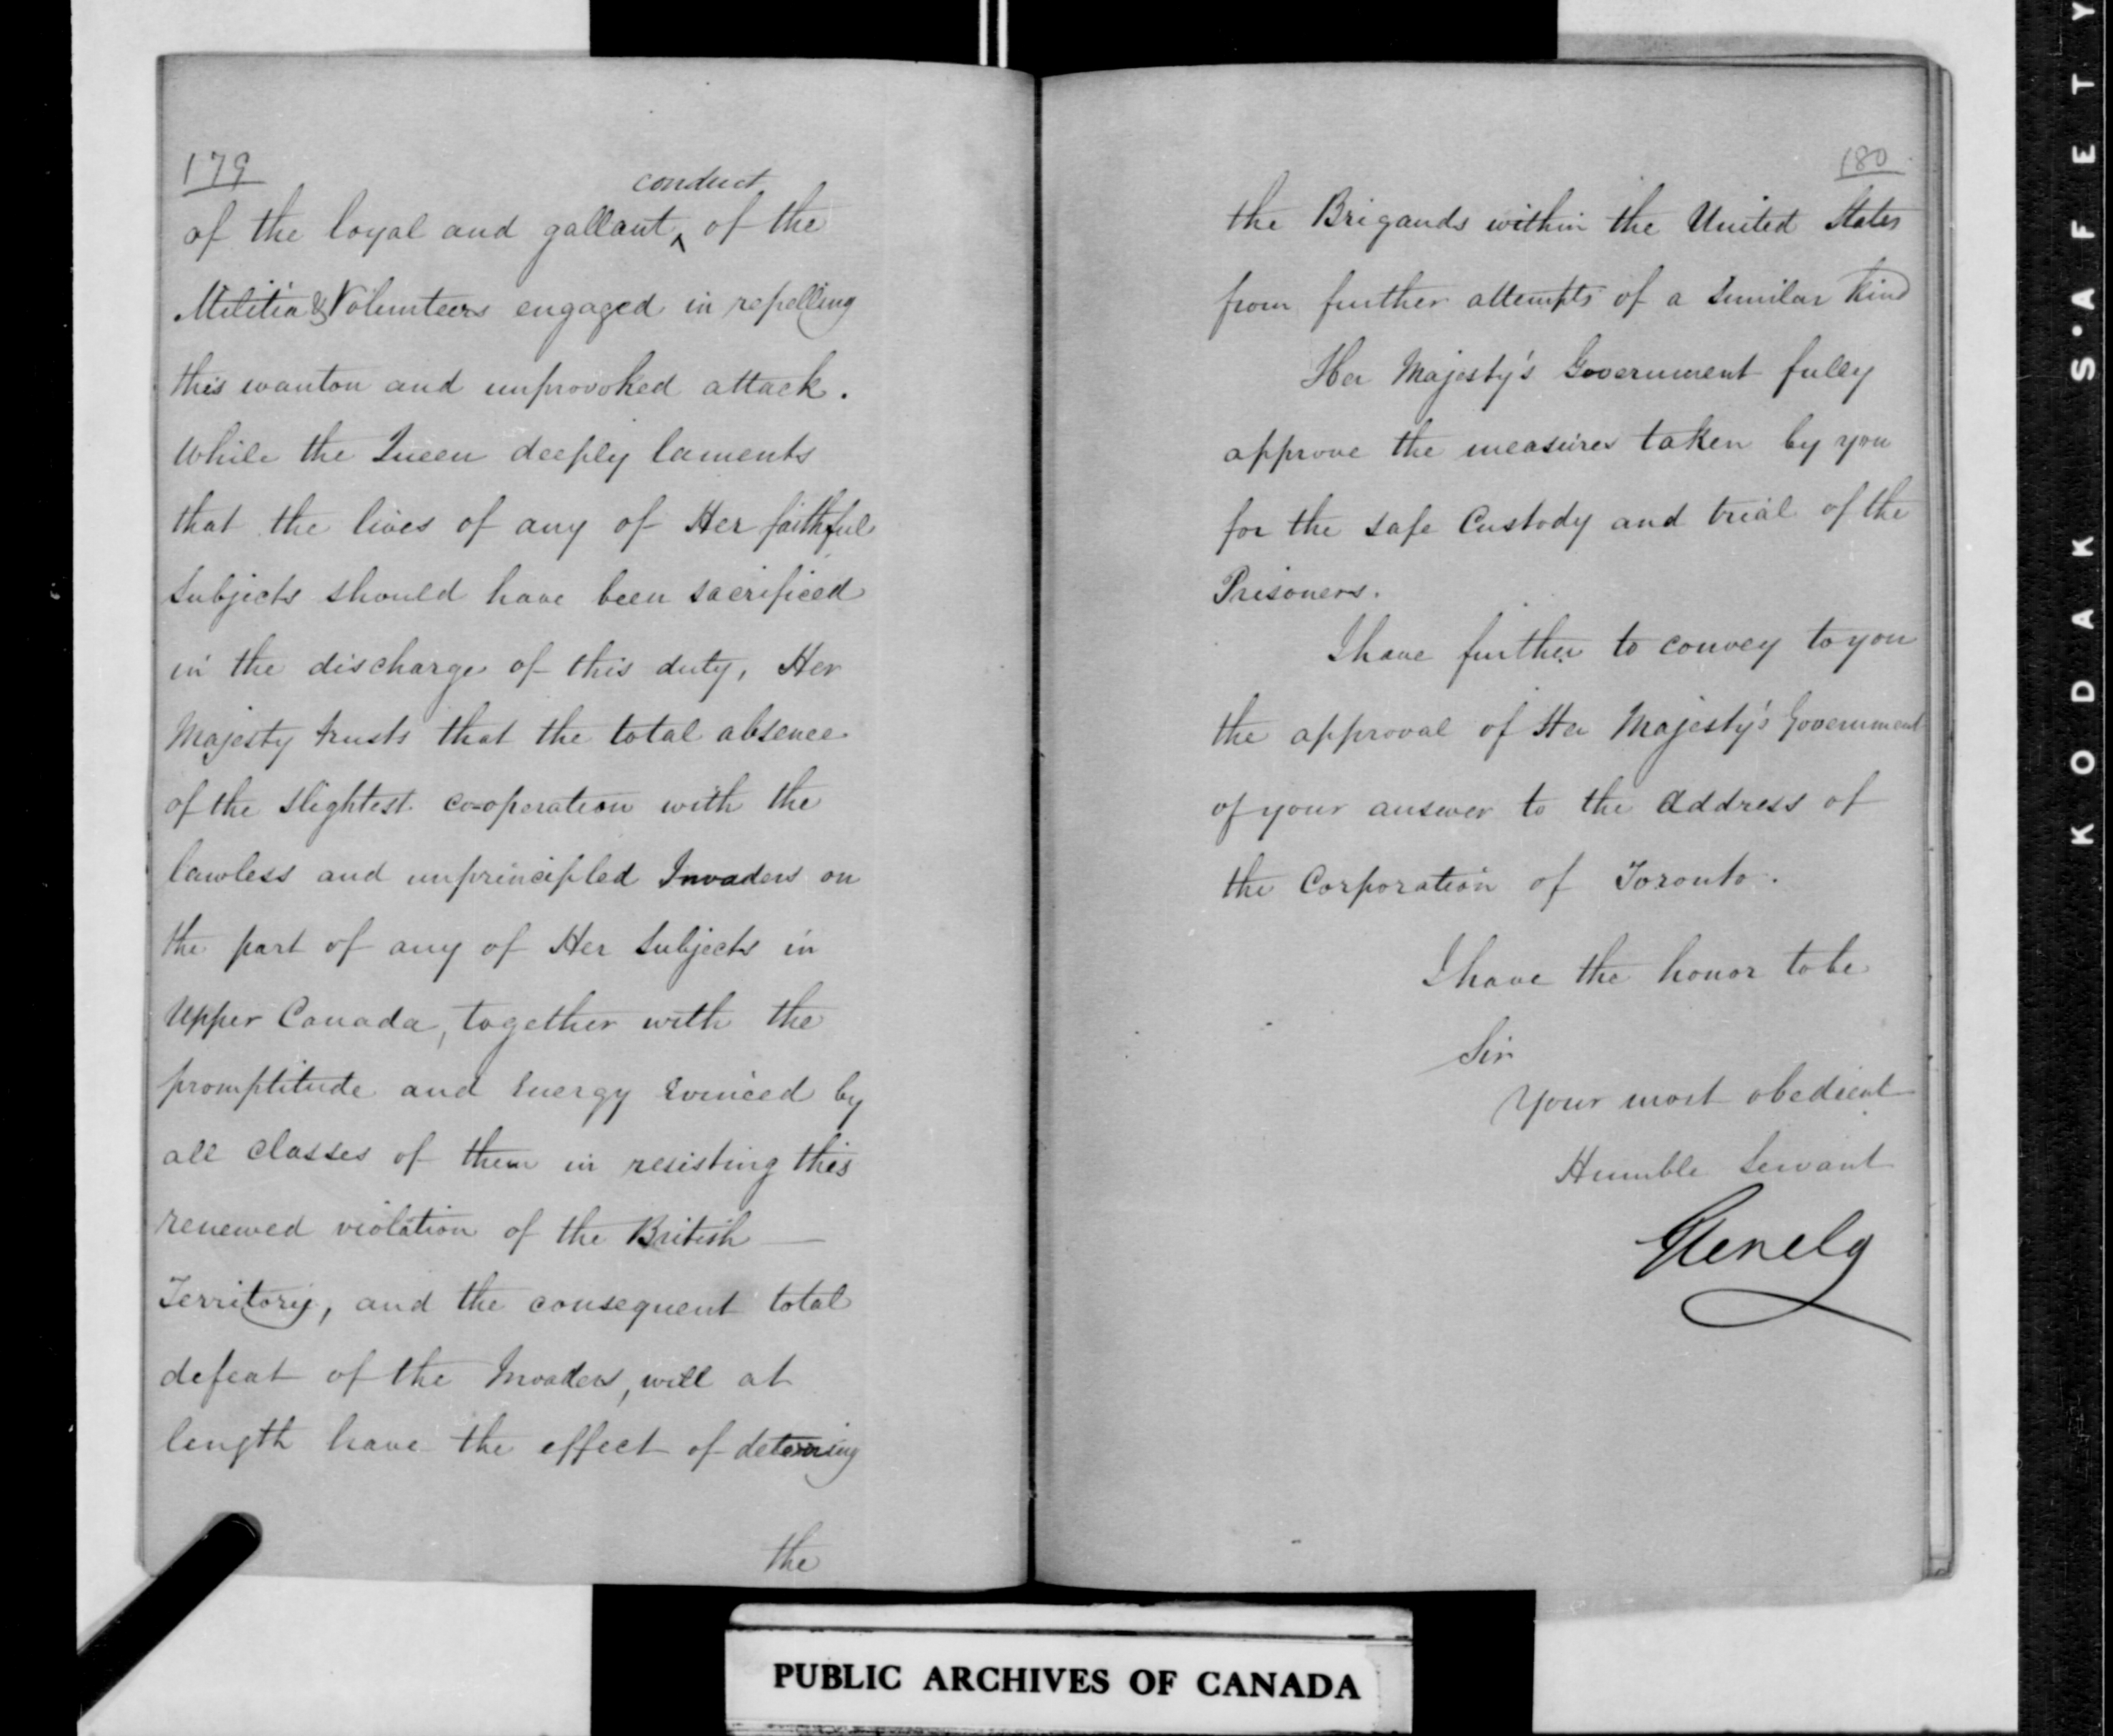 179
conduct
of the loyal and gallant ‸ of the
Militia & Volunteers engaged in repelling
this wanton and unprovoked attack.
While the Queen deeply laments
that the lives of any of Her faithful
Subjects should have been sacrificed
in the discharge of this duty, Her
Majesty trusts that the total absence
of the slightest co-operation with the
lawless and unprincipled Invaders on
the part of any of Her Subjects in
Upper Canada, together with the
promptitude and Energy Evinced by
all classes of them in resisting this
renewed violation of the British —
Territory, and the consequent total
defeat of the Invaders, will at
length have the effect of deterring
the
180
the Brigands within the United States
from further attempts of a Similar kind
Her Majesty's Government fully
approve the measures taken by you
for the safe Custody and trial of the
Prisoners.
I have further to convey to you
the approval of Her Majesty's Government
of your answer to the Address of
the Corporation of Toronto.
I have the honor to be
Sir
Your most obedient
Humble Servant
Glenelg
PUBLIC ARCHIVES OF CANADA
KODAK S'AFETY